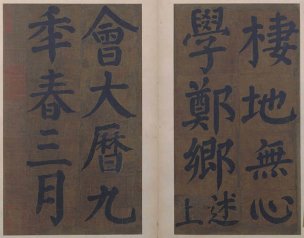 棲地無心
學鄭鄉述上
會大曆九
年春三月